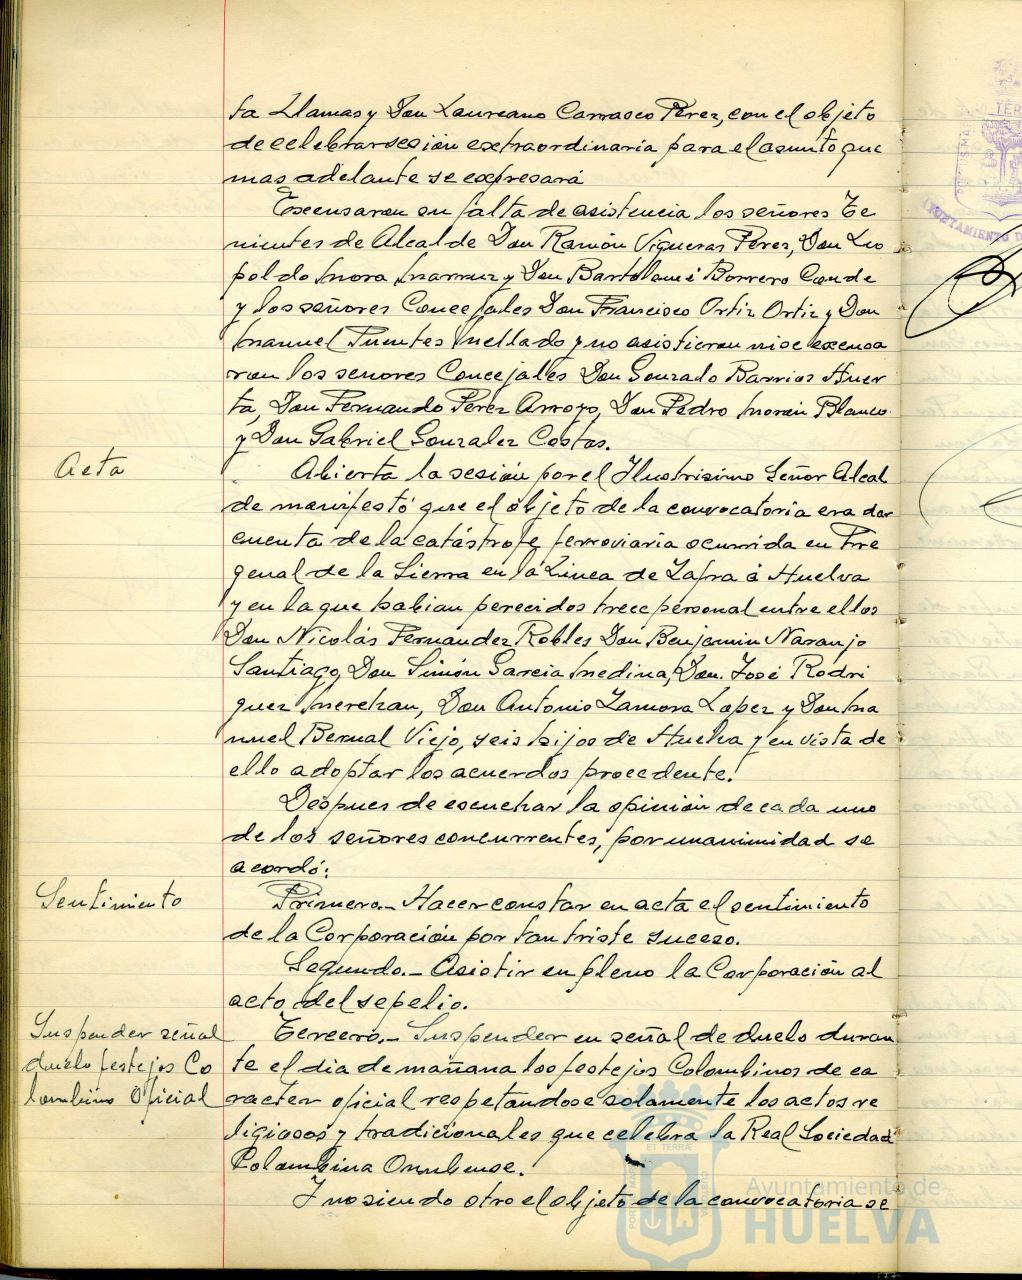 ta Llamas y Don Laureano Carrasco Perez, con el objeto
de celebrar sesión extraordinaria para el asunto que
mas adelante se expresará
Excusaron su falta de asistencia los señores Te
nientes de Alcalde Don Ramón Vigueras Perez, Don Leo
poldo Mora Marruz y Don Bartolomé Borrero Conde
y los señores Concejales Don Francisco Ortiz Ortiz y Don
Manuel Fuentes Mellado y no asistieron ni se excusa
ron los señores Concejales Don Gonzalo Barrios Huer
ta, Don Fernando Perez Arroyo, Don Pedro Morón Blanco
y Don Gabriel Gonzalez Costas.
Acta
Abierta la sesión por el Ilustrisimo Señor Alcal
de manifestó que el objeto de la convocatoria era dar
cuenta de la catástrofe ferroviaria ocurrida en Fre
genal de la Sierra en la Linea de Zafra á Huelva
y en la que habian perecidos trece personal entre ellos
Don Nicolás Fernandez Robles Don Benjamin Naranjo
Santiago, Don Simón Garcia Medina, Don José Rodri
guez Merchan, Don Antonio Zamora Lopez y Don Ma
nuel Bernal Viejo, seis hijos de Huelva y en vista de
ello adoptar los acuerdos procedente.
Despues de escuchar la opinión de cada uno
de los señores concurrentes, por unanimidad se
acordó:
Sentimiento
Primero.- Hacer constar en acta el sentimiento
de la Corporación por tan triste suceso.
Segundo.- Asistir en pleno la Corporación al
acto del sepelio.
Suspender señal
duelo festejos Co
lombino Oficial
Tercero.- Suspender en señal de duelo duran
te el dia de mañana los festejos Colombinos de ca
racter oficial respetandose solamente los actos re
ligiosos y tradicionales que celebra la Real Sociedad
Colombina Onubense.
Y no siendo otro el objeto de la convocatoria se
Ayuntamiento de
HUELVA